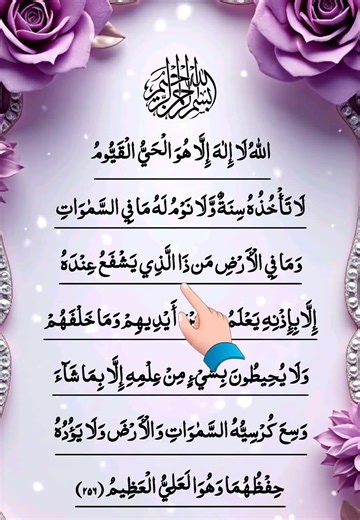 بسم الله الرحمن الرحيم
اللهُ لَا إِلٰهَ إِلَّا هُوَ الْحَيُّ الْقَيُّومُ
لَا تَأْخُذُهُ سِنَةٌ وَّلَا نَوْمٌ لَهُ مَا فِي السَّمٰوَاتِ
وَمَا فِي الْأَرْضِ مَن ذَا الَّذِي يَشْفَعُ عِنْدَهُ
إِلَّا بِإِذْنِهِ يَعْلَمُ أَيْدِيهِمْ وَمَا خَلْفَهُمْ
وَلَا يُحِيطُونَ بِشَيْءٍ مِنْ عِلْمِهِ إِلَّا بِمَا شَآءَ
وَسِعَ كُرْسِيُّهُ السَّمٰوَاتِ وَالْأَرْضَ وَلَا يَؤُدُهُ
حِفْظُهُمَا وَهُوَا لَعَلِيُّ الْعَظِيمُ (٢٥٦)